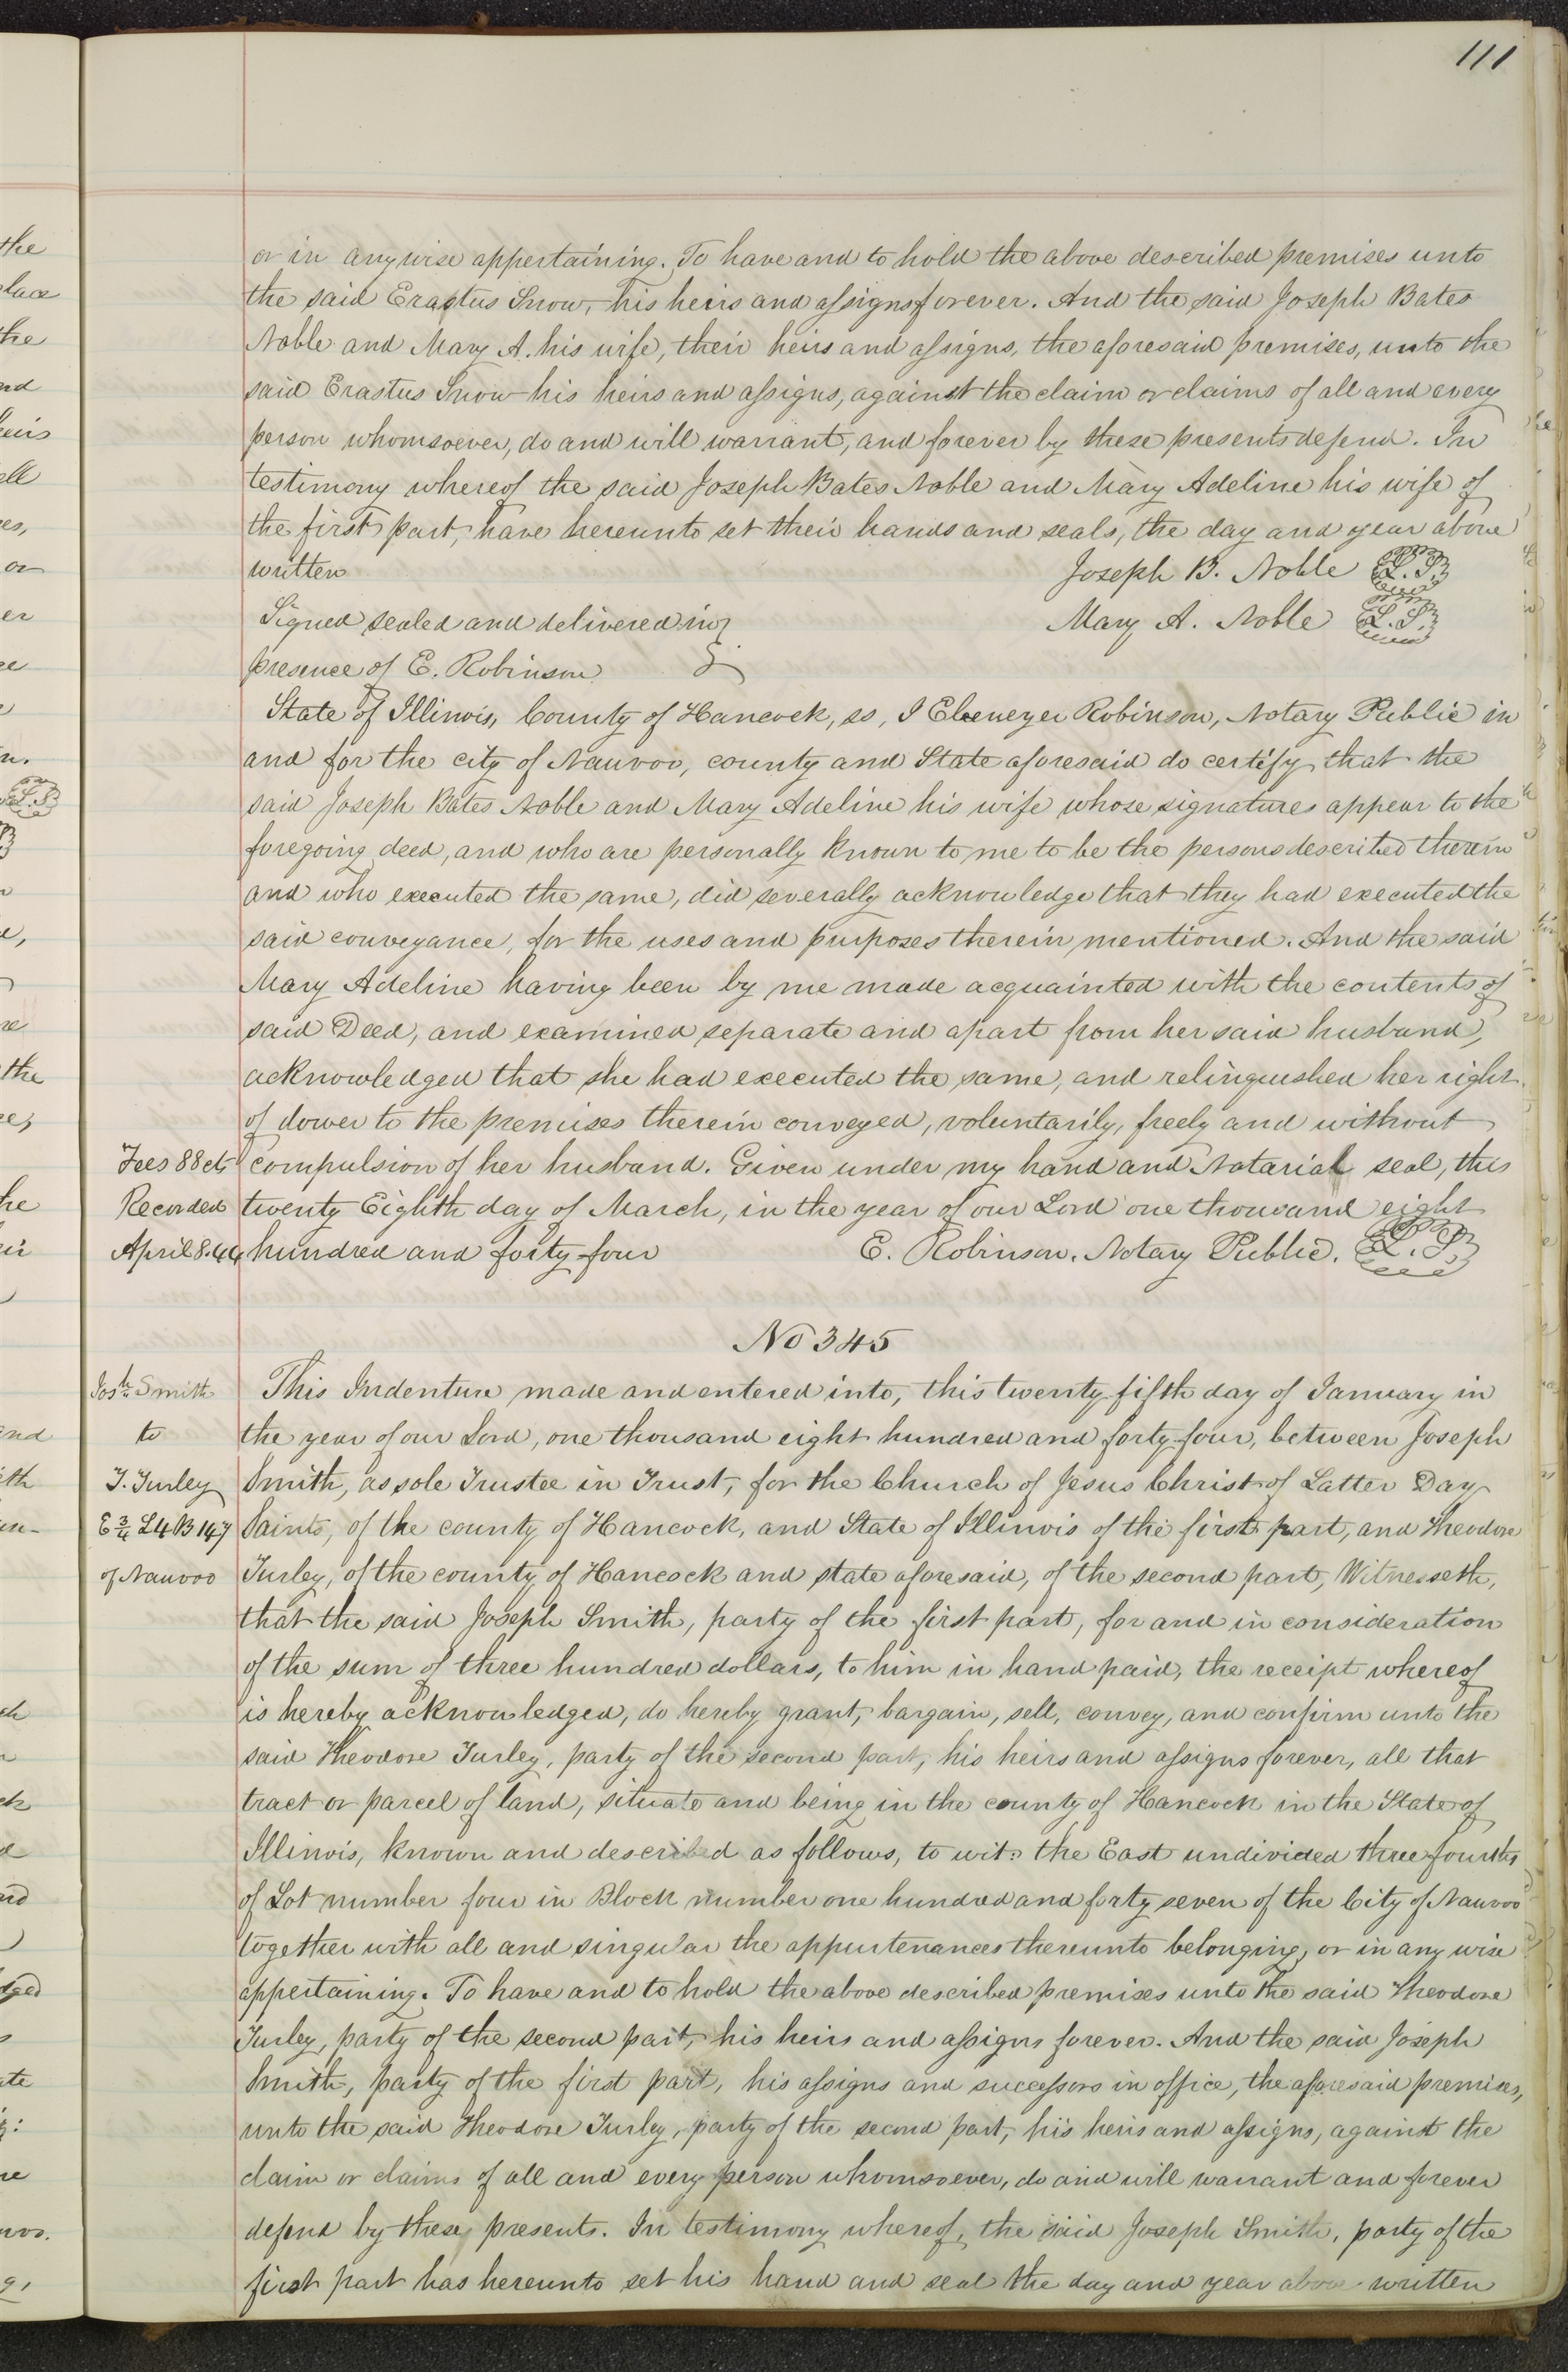 111
or in anywise appertaining. To have and to hold the above described premises unto
the said Erastus Snow, his heirs and assigns forever. And the said Joseph Bates
Noble and Mary A. his wife, their heirs and assigns, the aforesaid premises, unto the
said Erastus Snow his heirs and assigns, against the claim or claims of all and every
person whomsoever, do and will warrant, and forever by these presents defend. In
testimony whereof the said Joseph Bates Noble and Mary Adeline his wife of
the first part, have hereunto set their hands and seals, the day and year above
written Joseph B. Noble L.S.
Signed sealed and delivered in Mary A. Noble L.S.
presence of E. Robinson
State of Illinois, County of Hancock, ss, I Ebenezer Robinson, Notary Public in
and for the city of Nauvoo, county and State aforesaid do certify that the
said Joseph Bates Noble and Mary Adeline his wife whose signatures appear to the
foregoing deed, and who are personally known to me to be the persons described therein
and who executed the same, did severally acknowledge that they had executed the
said conveyance, for the uses and purposes therein mentioned. And the said
Mary Adeline having been by me made acquainted with the contents of
said Deed, and examined separate and apart from her said husband,
acknowledged that she had executed the same, and relinquished her right
of dower to the premises therein conveyed, voluntarily, freely and without
Fees 88 cts compulsion of her husband. Given under my hand and Notarial seal, this
Recorded twenty Eighth day of March, in the year of our Lord one thousand eight
April 8. 44 hundred and forty four E. Robinson. Notary Public. L.S.
No 345
Josh Smith This Indenture made and entered into, this twenty fifth day of January in
to the year of our Lord, one thousand eight hundred and forty four, between Joseph
T. Turley Smith, as sole Trustee in Trust, for the Church of Jesus Christ of Latter Day
E 3/4 L4 B 147 Saints, of the county of Hancock, and State of Illinois of the first part, and Theodore
of Nauvoo Turley, of the county of Hancock and state aforesaid, of the second part, Witnesseth,
that the said Joseph Smith, party of the first part, for and in consideration
of the sum of three hundred dollars, to him in hand paid, the receipt whereof
is hereby acknowledged, do hereby grant, bargain, sell, convey, and confirm unto the
said Theodore Turley, party of the second part, his heirs and assigns forever, all that
tract or parcel of land, situate and being in the county of Hancock in the State of
Illinois, known and described as follows, to wit: the East undivided three fourths
of Lot number four in Block number one hundred and forty seven of the City of Nauvoo
together with all and singular the appurtenances thereunto belonging, or in any wise
appertaining. To have and to hold the above described premises unto the said Theodore
Turley, party of the second part, his heirs and assigns forever. And the said Joseph
Smith, party of the first part, his assigns and successors in office, the aforesaid premises,
unto the said Theodore Turley, party of the second part, his heirs and assigns, against the
claim or claims of all and every person whomsoever, do and will warrant and forever
defend by these presents. In testimony whereof, the said Joseph Smith, party of the
first part has hereunto set his hand and seal the day and year above written